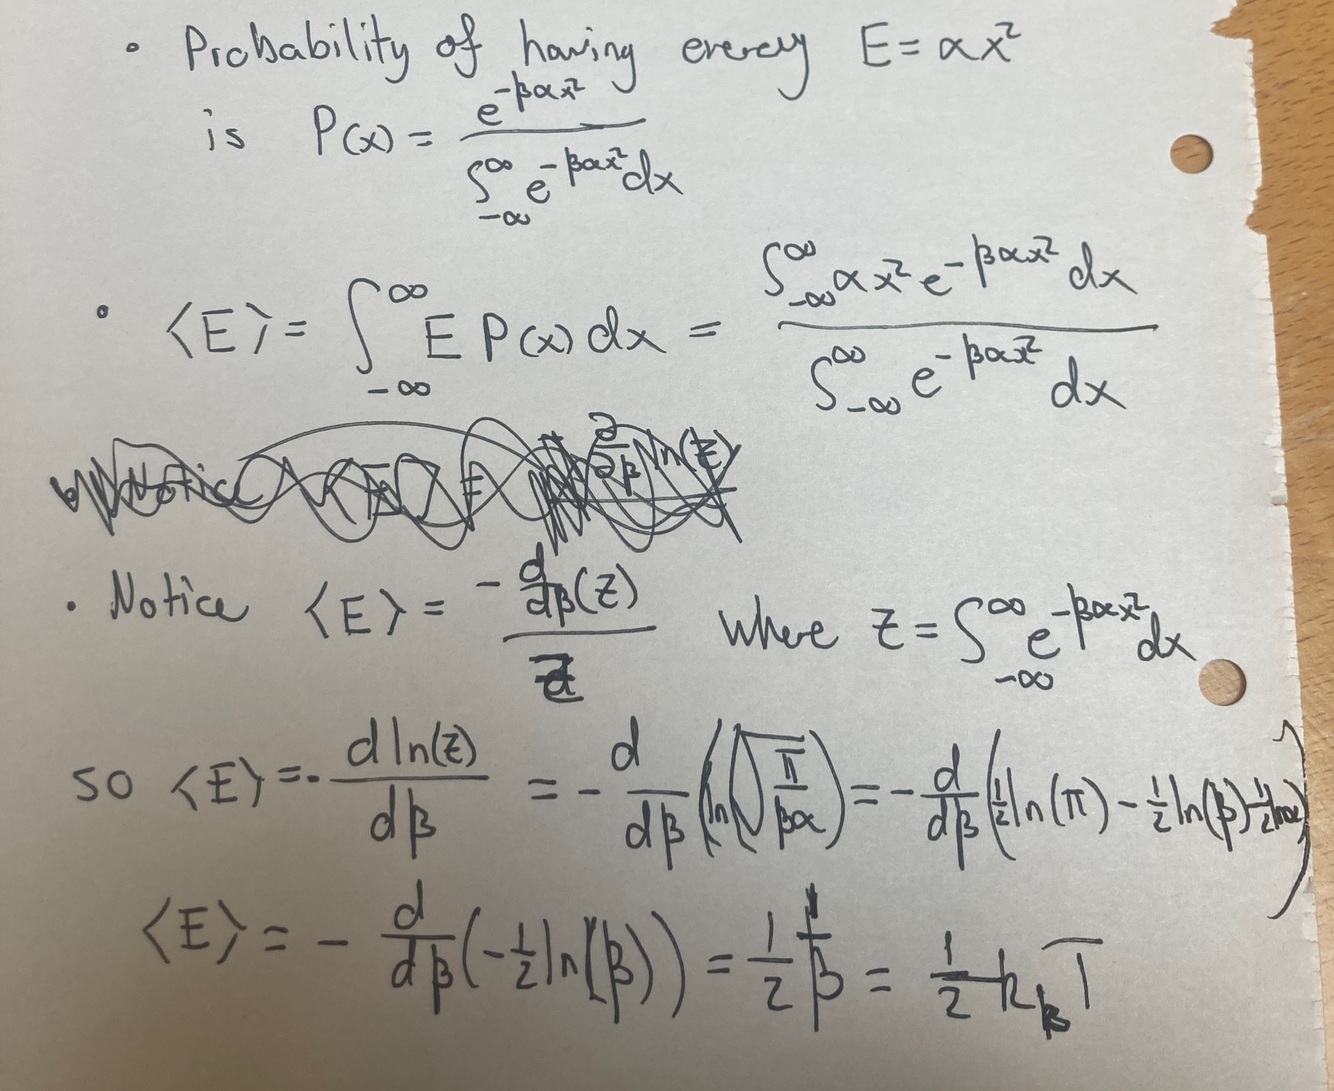 • Probability of having energy E = αx²
is P(x) = e^{-βαx²} / ∫_{-∞}^{∞} e^{-βαx²} dx
• ⟨E⟩ = ∫_{-∞}^{∞} E P(x) dx = ∫_{-∞}^{∞} αx² e^{-βαx²} dx / ∫_{-∞}^{∞} e^{-βαx²} dx
Notice ⟨E⟩ = ∂/∂β ln(Z)
• Notice ⟨E⟩ = -d/dβ(Z) / Z where Z = ∫_{-∞}^{∞} e^{-βαx²} dx
so ⟨E⟩ = - d ln(Z) / dβ = - d/dβ (ln(√(π/βα))) = - d/dβ (½ ln(π) - ½ ln(β) - ½ ln α)
⟨E⟩ = - d/dβ (-½ ln(β)) = ½ 1/β = ½ k_B T